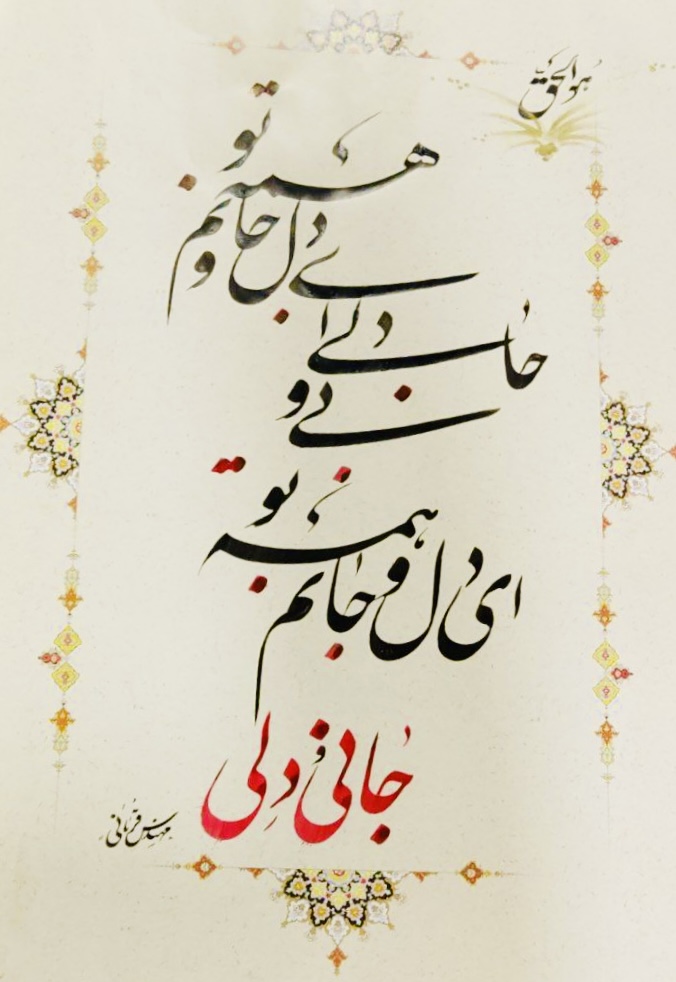 هو الحق
همه تو
ای دل و جانم
جانی و دلی
ای دل و جانم همه تو
جانی و دلی
مهندس قربانی